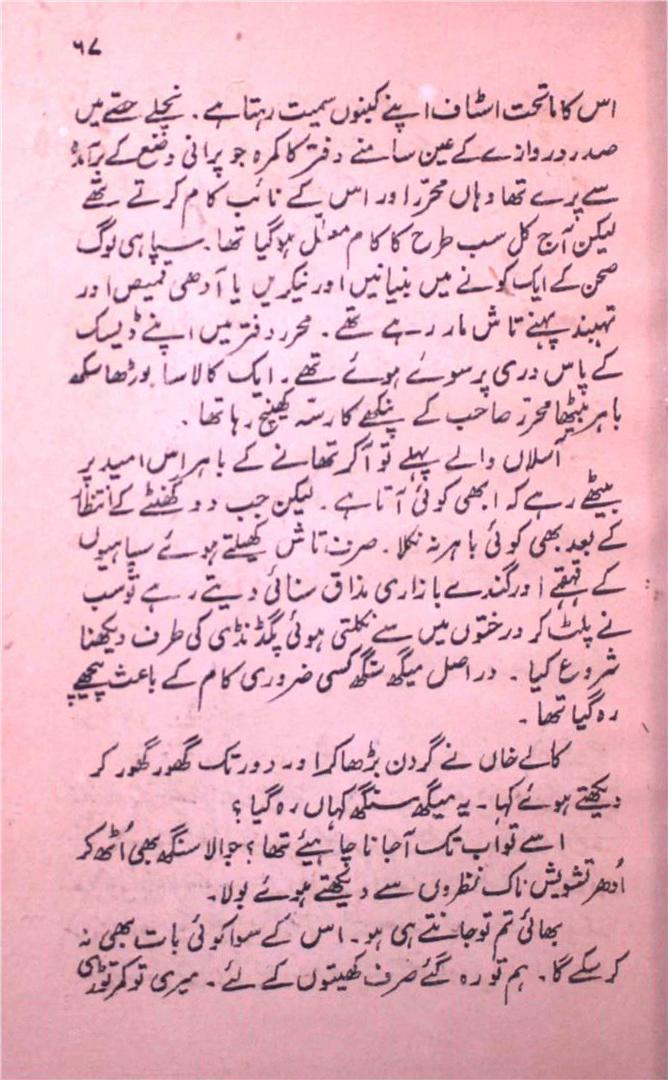 ۶۷
اس کا ماتحت اسٹاف اپنے کینوں سمیت رہتا ہے۔ نچلے حصّے میں
صدر دروازے کے عین سامنے دفتر کا کمرہ جو پرانی وضع کے برآمدہ
سے پرے تھا وہاں محرّر اور اس کے نائب کام کرتے تھے
لیکن آج کل سب طرح کا کام معطّل ہو گیا تھا۔ سپاہی لوگ
صحن کے ایک کونے میں بنیانیں اور نیکریں یا آدھی قمیص اور
تہبند پہنے تاش مار رہے تھے۔ محرر دفتر میں اپنے ڈیسک
کے پاس دری پر سوئے ہوئے تھے۔ ایک کالا سا بوڑھا سکھ
باہر بیٹھا محرّر صاحب کے پنکھے کا رسّہ کھینچ رہا تھا۔
آسلاں والے پہلے تو آ کر تھانے کے باہر اس امید پر
بیٹھے رہے کہ ابھی کوئی آتا ہے۔ لیکن جب دو گھنٹے کے انتظار
کے بعد بھی کوئی باہر نہ نکلا۔ صرف تاش کھیلتے ہوئے سپاہیوں
کے قہقہے اور گندے بازاری مذاق سنائی دیتے رہے تو سب
نے پلٹ کر درختوں میں سے نکلتی ہوئی پگڈنڈی کی طرف دیکھنا
شروع کیا۔ دراصل میگھ سنگھ کسی ضروری کام کے باعث پیچھے
رہ گیا تھا۔
کالے خاں نے گردن بڑھا کر اور دور تک گھور گھور کر
دیکھتے ہوئے کہا۔ یہ میگھ سنگھ کہاں رہ گیا؟
اسے تو اب تک آ جانا چاہیئے تھا؟ جوالا سنگھ بھی اُٹھ کر
اُدھر تشویش ناک نظروں سے دیکھتے ہوئے بولا۔
بھائی تم تو جانتے ہی ہو۔ اس کے سوا کوئی بات بھی نہ
کر سکے گا۔ ہم تو رہ گئے صرف کھیتوں کے لئے۔ میری تو کمر توڑ دی